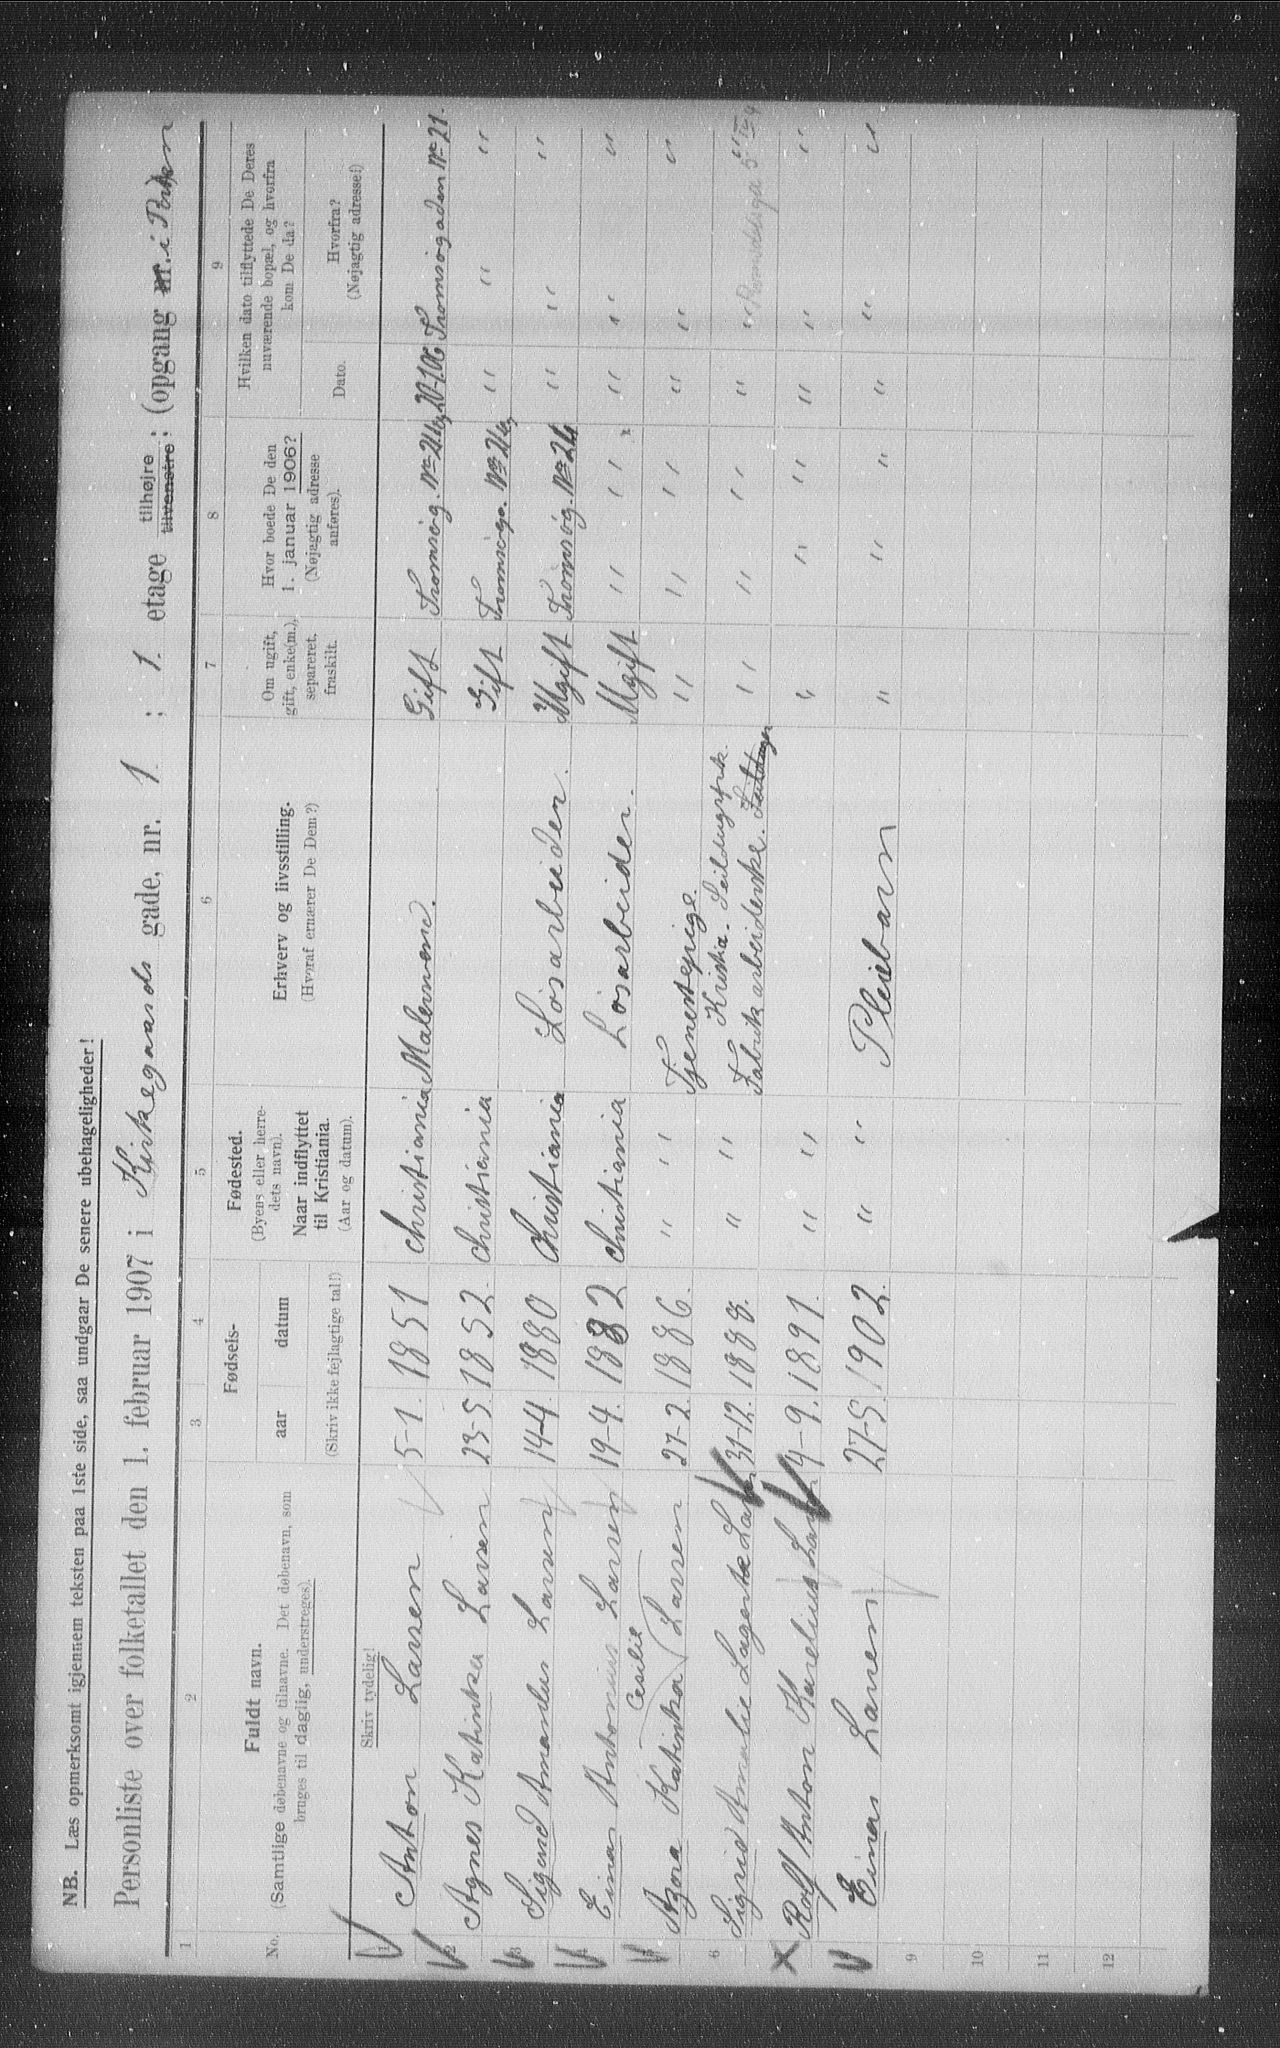 NB. Læs opmerksomt igjennem teksten paa 1ste side, saa undgaar De senere ubehageligheder!
Personliste over folketallet den 1. februar 1907 i Kirkegaards gade, nr. 1 ; 1. etage tilhøjre tilvenstre ; (opgang nr. i Porten
1 2 3 4 5 6 7 8 9
No.
Fuldt navn.
(Samtlige døbenavne og tilnavne. Det døbenavn, som
bruges til daglig, understreges).
Fødsels-
aar datum
Fødested.
(Byens eller herre-
dets navn).
Naar indflyttet
til Kristiania.
(Aar og datum).
Erhverv og livsstilling.
(Hvoraf ernærer De Dem?)
Om ugift,
gift, enke(m.),
separeret,
fraskilt.
Hvor boede De den
1. januar 1906?
(Nøjagtig adresse
anføres).
Hvilken dato tilflyttede De Deres
nuværende bopæl, og hvorfra
kom De da?
Dato.
Hvorfra?
(Nøjagtig adresse!)
Skriv tydelig!
(Skriv ikke fejlagtige tal!)
1 Anton Larsen 5-1. 1851 Christiania Malermand. Gift Tromsøg. No 21 20-1 06 Tromsøgaden No 21.
2 Agnes Katinka Larsen 23-5. 1852. Christiania Gift Tromsøg. No 21 " " "
3 Sigurd Amandus Larsen 14-4. 1880 Christiania Løsarbeider. Ugift Tromsøg. No 21 " " "
4 Einar Antonius Larsen 19-4. 1882 Christiania Løsarbeider. Ugift " " " " "
5 Agora Katinka Cesilie Larsen 27-2. 1886. " " Tjenestepige. " " " " " "
6 Sigrid Amalie Lagerta Larsen 31-12. 1888. " " Kristia. Seildugsfrk.
Fabrikarbeiderske. " " " " " "
Romsdalsga 5 IV 4
Rolf Anton Karelius Larsen 4-9. 1891. " " " " " " " "
Einar Larsen 27-5. 1902. " " Pleiebarn " " " " " "
9
10
11
12